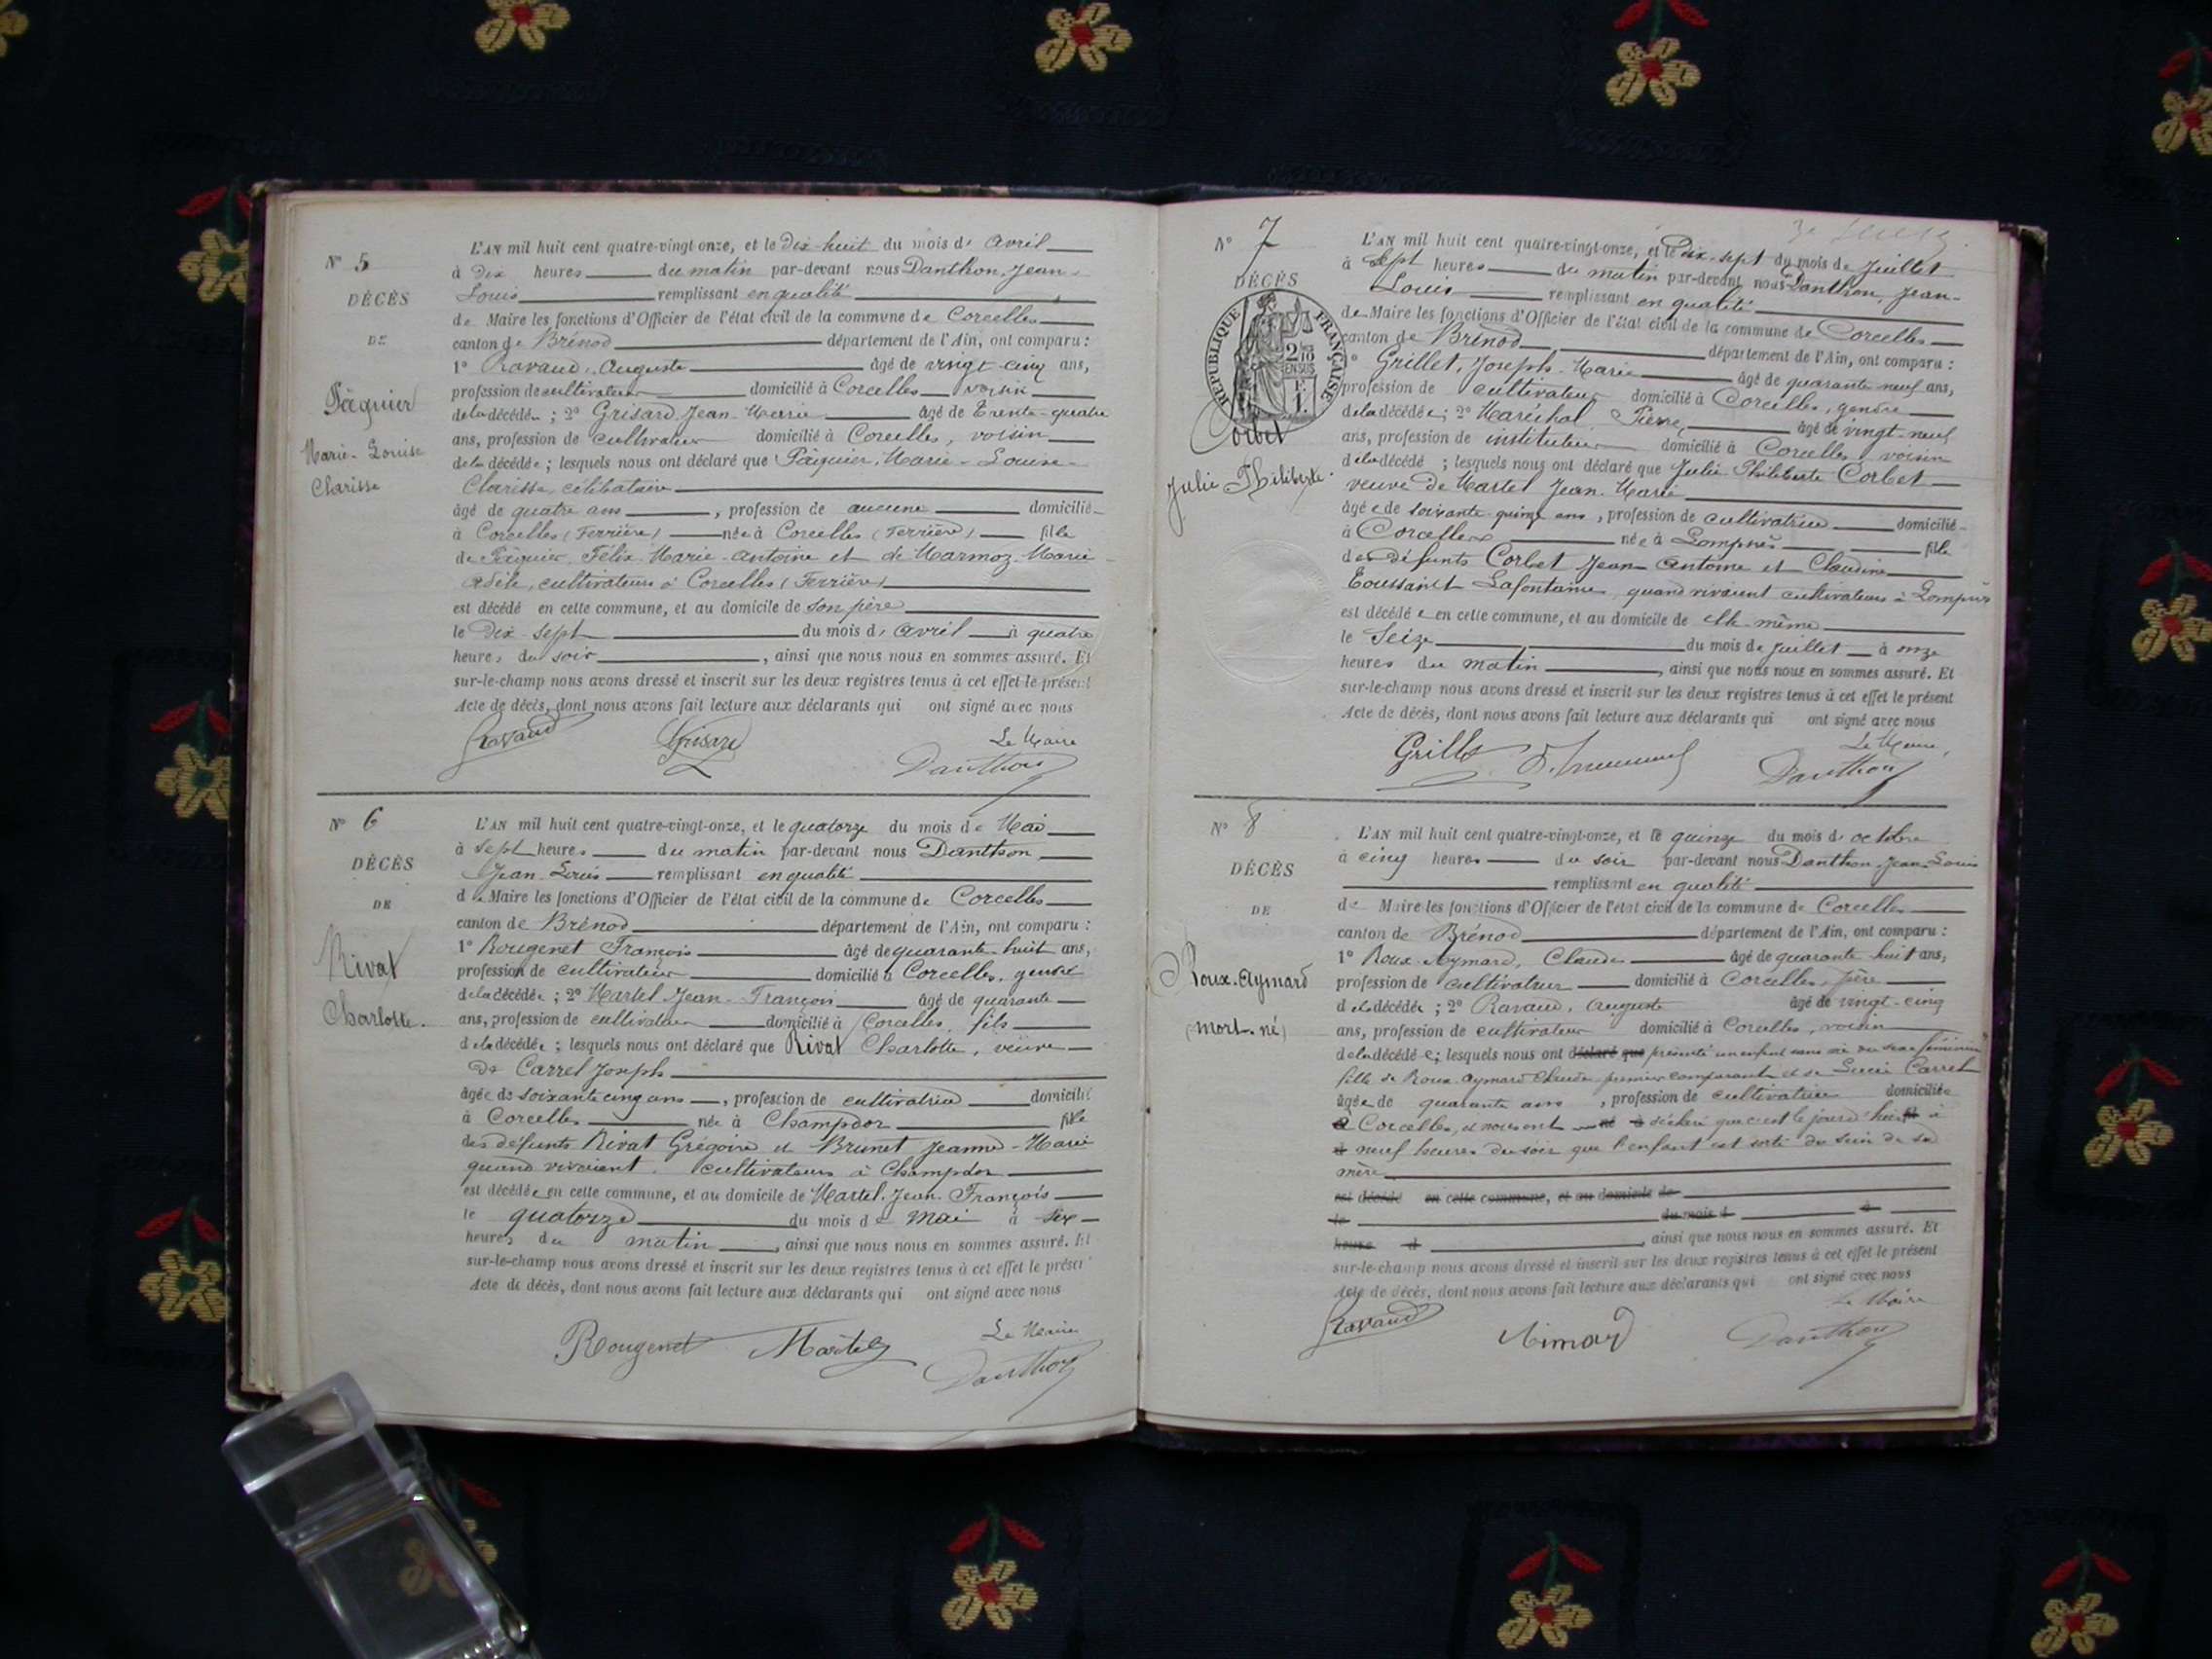 N° 5
DÉCÈS
DE
Pâquier
Marie-Louise
Clarisse
L'AN mil huit cent quatre-vingt-onze, et le dix-huit du mois d' avril
à dix heures du matin par-devant nous Danthon, Jean-
Louis remplissant en qualité
de Maire les fonctions d'Officier de l'état civil de la commune de Corcelles
canton de Brénod département de l'Ain, ont comparu :
1° Ravaud, Auguste âgé de vingt-cinq ans,
profession de cultivateur domicilié à Corcelles voisin
de la décédée ; 2° Grisard Jean-Marie âgé de trente-quatre
ans, profession de cultivateur domicilié à Corcelles, voisin
de la décédée ; lesquels nous ont déclaré que Pâquier, Marie-Louise-
Clarisse, célibataire
âgé de quatre ans, profession de aucune domicilié
à Corcelles (Ferrière) née à Corcelles (Ferrière) fille
de Pâquier, Félix-Marie-Antoine et de Marmoz-Marie-
Adèle, cultivateurs à Corcelles (Ferrière)
est décédé en cette commune, et au domicile de son père
le dix-sept du mois d' avril à quatre
heures du soir, ainsi que nous nous en sommes assuré. Et
sur-le-champ nous avons dressé et inscrit sur les deux registres tenus à cet effet le présent
Acte de décès, dont nous avons fait lecture aux déclarants qui ont signé avec nous
Ravaud Grisard Le Maire
Danthon
N° 6
DÉCÈS
DE
Rivat
Charlotte.
L'AN mil huit cent quatre-vingt-onze, et le quatorze du mois de Mai
à sept heures du matin par-devant nous Danthon
Jean-Louis remplissant en qualité
de Maire les fonctions d'Officier de l'état civil de la commune de Corcelles
canton de Brénod département de l'Ain, ont comparu :
1° Rougenet François âgé de quarante-huit ans,
profession de cultivateur domicilié à Corcelles, gendre
de la décédée ; 2° Martel Jean-François âgé de quarante
ans, profession de cultivateur domicilié à Corcelles, fils
de la décédée ; lesquels nous ont déclaré que Rivat Charlotte, veuve
de Carrel Joseph
âgée de soixante cinq ans, profession de cultivatrice domicilié
à Corcelles née à Champdor fille
des défunts Rivat Grégoire et Brunet Jeanne-Marie
quand vivaient cultivateurs à Champdor
est décédée en cette commune, et au domicile de Martel, Jean-François
le quatorze du mois de mai à six
heures du matin, ainsi que nous nous en sommes assuré. Et
sur-le-champ nous avons dressé et inscrit sur les deux registres tenus à cet effet le présent
Acte de décès, dont nous avons fait lecture aux déclarants qui ont signé avec nous
Rougenet Martel Le Maire
Danthon
N° 7
DÉCÈS
RÉPUBLIQUE FRANÇAISE
Corbet
Julie Philiberte.
L'AN mil huit cent quatre-vingt-onze, et le dix-sept du mois de juillet
à sept heures du matin par-devant nous Danthon, Jean-
Louis remplissant en qualité
de Maire les fonctions d'Officier de l'état civil de la commune de Corcelles
canton de Brénod département de l'Ain, ont comparu :
1° Grillet, Joseph-Marie âgé de quarante-neuf ans,
profession de cultivateur domicilié à Corcelles, gendre
de la décédée ; 2° Maréchal, Pierre, âgé de vingt-neuf
ans, profession de instituteur domicilié à Corcelles voisin
de la décédé ; lesquels nous ont déclaré que Julie-Philiberte Corbet
veuve de Martel Jean-Marie
âgée de soixante-quinze ans, profession de cultivatrice domicilié
à Corcelles née à Lompnès fille
des défunts Corbet Jean-Antoine et Claudine
Toussaint Lafontaine, quand vivaient cultivateurs à Lompnès
est décédée en cette commune, et au domicile de elle-même
le seize du mois de juillet à onze
heures du matin, ainsi que nous nous en sommes assuré. Et
sur-le-champ nous avons dressé et inscrit sur les deux registres tenus à cet effet le présent
Acte de décès, dont nous avons fait lecture aux déclarants qui ont signé avec nous
Grillet Le Maire,
Danthon
N° 8
DÉCÈS
DE
Roux-Aymard
(mort-né)
L'AN mil huit cent quatre-vingt-onze, et le quinze du mois d' octobre
à cinq heures du soir par-devant nous Danthon Jean-Louis
remplissant en qualité
de Maire les fonctions d'Officier de l'état civil de la commune de Corcelles
canton de Brénod département de l'Ain, ont comparu :
1° Roux-Aymard, Claude âgé de quarante-huit ans,
profession de cultivateur domicilié à Corcelles, père
de la décédée ; 2° Ravaud, Auguste âgé de vingt-cinq
ans, profession de cultivateur domicilié à Corcelles, voisin
de la décédée ; lesquels nous ont déclaré que présenté un enfant sans vie du sexe féminin
fille de Roux-Aymard Claude premier comparant et de Lucie Carrel
âgée de quarante ans, profession de cultivatrice domiciliée
à Corcelles, et nous ont né à déclaré que c'est le jourd'hui à
neuf heures du soir que l'enfant est sorti du sein de sa
mère
est décédé en cette commune, et au domicile de
le du mois d à
heure d ainsi que nous nous en sommes assuré. Et
sur-le-champ nous avons dressé et inscrit sur les deux registres tenus à cet effet le présent
Acte de décès, dont nous avons fait lecture aux déclarants qui ont signé avec nous
Ravaud Aimard Le Maire
Danthon